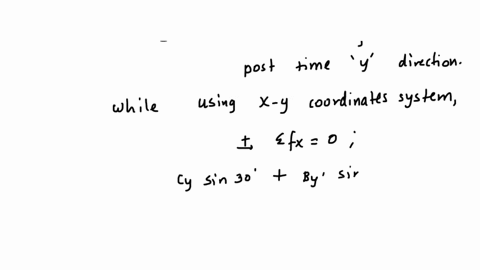 post time 'y' direction.
while using x-y coordinates system,
± Σfx = 0 ;
Cy sin 30° + By' sin